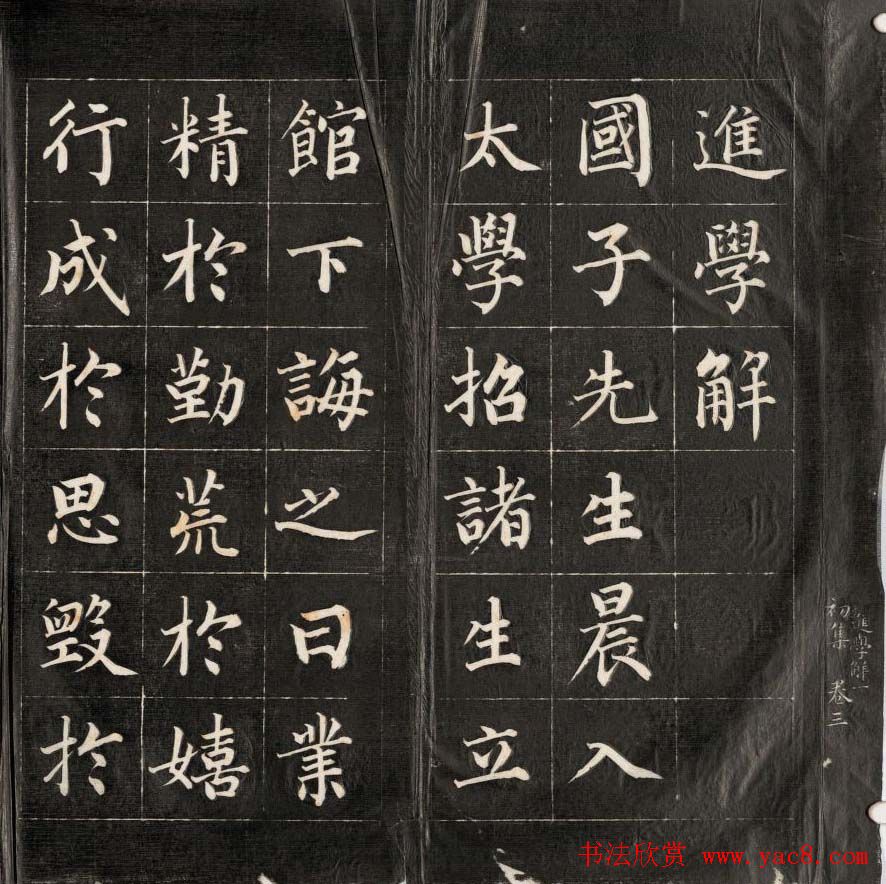 進學解
國子先生晨入
太學招諸生立
館下誨之曰業
精於勤荒於嬉
行成於思毀於
進學解一
初集 卷三
书法欣赏 www.yac8.com